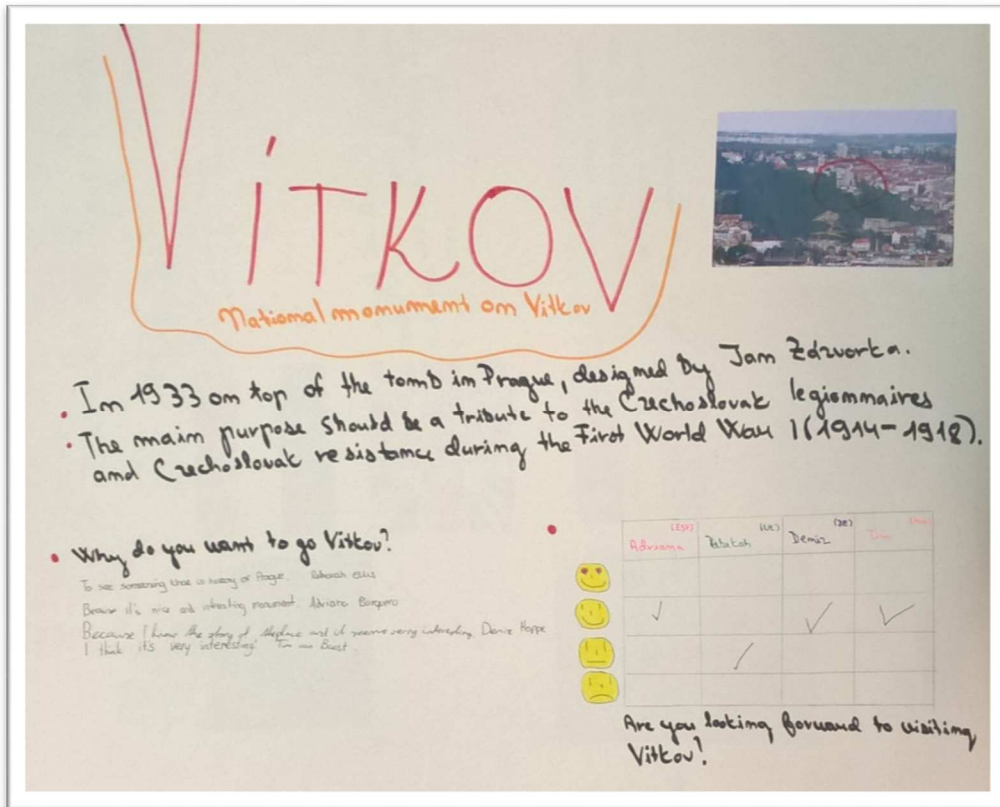 VíTKOV
National monument on Vitkov
In 1933 on top of the tomb in Prague, designed by Jan Zdzvorka.
The main purpose should be a tribute to the Czechoslovak legionnaires
and Czechoslovak resistance during the First World War 1(1914-1918).
Why do you want to go Vitkov?
To see something that is history of Prague. Rebekah
Because it's nice and interesting monument. Adriana
Because I know the of and it seems very interesting. Deniz Hoppe
I think it's very interesting! Tim van
(ESP) (UK) (DE)
Adriana Rebekah Deniz Tim
Are you looking forward to visiting
Vitkov?